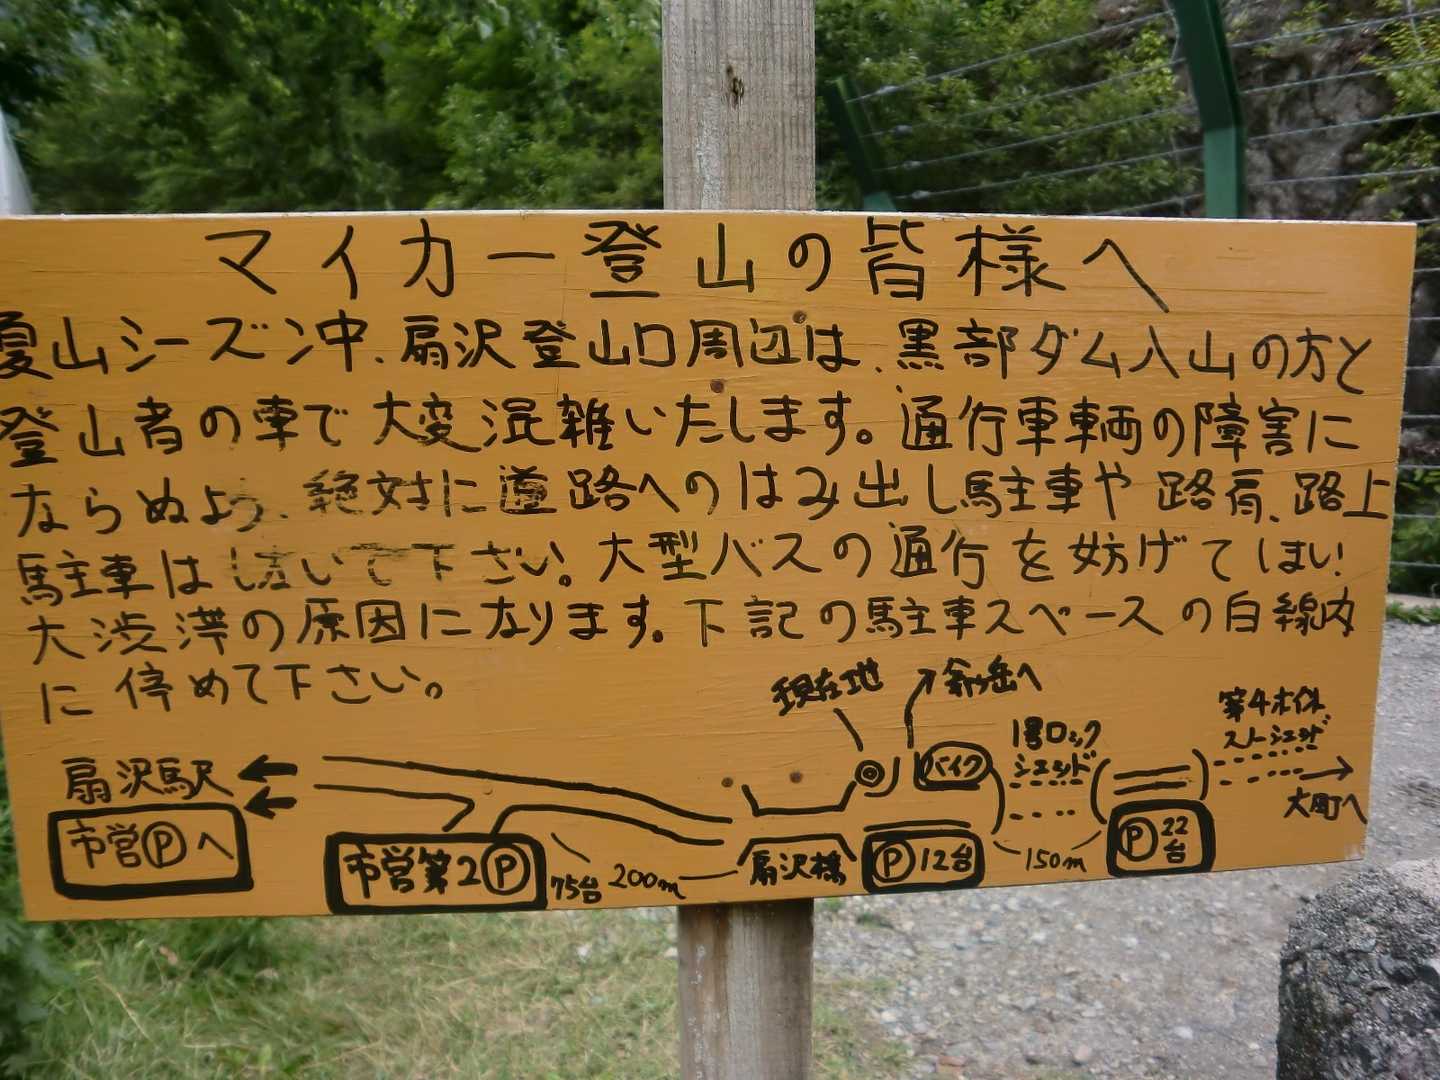 マイカー登山の皆様へ
夏山シーズン中、扇沢登山口周辺は、黒部ダム入山の方と
登山者の車で大変混雑いたします。通行車車両の障害に
ならぬよう、絶対に道路へのはみ出し駐車や路肩、路上
駐車はしないで下さい。大型バスの通行を妨げてはい
大渋滞の原因になります。下記の駐車スペースの白線内
に停めて下さい。
現在地
爺ヶ岳へ
1号ロック
シェッド
第4ホイト
スノーシェッド
扇沢駅
バイク
大町へ
市営Ⓟへ
市営第2Ⓟ
75台
200m
扇沢橋
Ⓟ12台
150m
Ⓟ22台